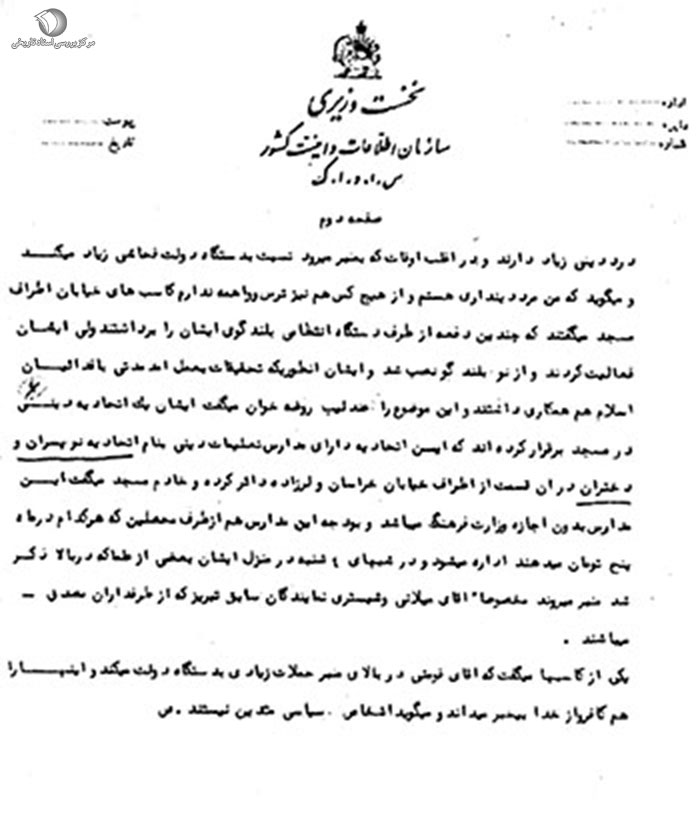 مرکز بررسی اسناد تاریخی
نخست وزیری
سازمان اطلاعات و امنیت کشور
س.ا.و.ا.ک
اداره
دایره
شماره
پیوست
تاریخ
صفحه دوم
درد دینی زیاد دارند و در اغلب اوقات که بمنبر میرود نسبت بدستگاه دولت فحاشی زیاد میکند
و میگوید که من مرد دینداری هستم و از هیچ کس هم نیز ترس و واهمه ندارم کاسب های خیابان اطراف
مسجد میگفتند که چندین دفعه از طرف دستگاه انتظامی بلند گوی ایشان را برداشتند ولی ایشان
فعالیت کردند و از نو بلند گو نصب شد و ایشان انطوریکه تحقیقات بعمل امد مدتی با فدائیان
اسلام هم همکاری داشتند و این موضوع را عندلیب روضه خوان میگفت ایشان یک اتحادیه دینی
در مسجد برقرار کرده اند که ایـن اتحادیه دارای مدارس تعلیمات دینی بنام اتحادیه نو پسران و
دختران در ان قسمت از اطراف خیابان خراسان و لرزاده دائر کرده و خادم مسجد میگفت این
مدارس بدون اجازه وزارت فرهنگ میباشد و بودجه این مدارس هم از طرف محصلین که هرکدام در ماه
پنج تومان میدهند اداره میشود و در شبهای ٤ شنبه در منزل ایشان بعضی از علما که در بالا ذکر
شد منبر میروند مخصوصا" اقای میلانی و شبستری نمایندگان سابق تبریز که از طرفداران مصدق –
میباشند .
یکی از کاسبها میگفت که اقای در بالای منبر حملات زیادی بدستگاه دولت میکند و اینها را
هم کافر و از خدا بیخبر میداند و میگوید اشخاص . سیاسی متدین نیستند .ص